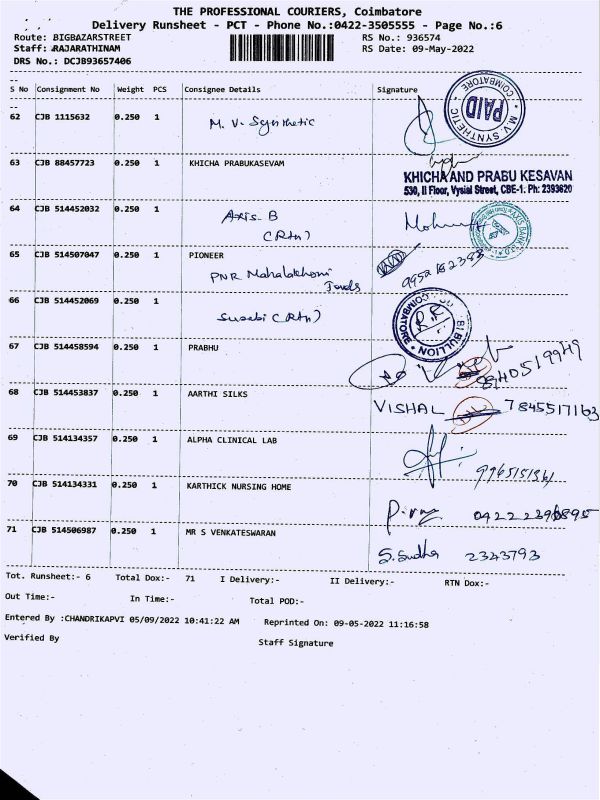 THE PROFESSIONAL COURIERS, Coimbatore
Delivery Runsheet - PCT - Phone No.:0422-3505555 - Page No.:6
Route: BIGBAZARSTREET RS No.: 936574
Staff: RAJARATHINAM RS Date: 09-May-2022
DRS No.: DCJB93657406
S No Consignment No Weight PCS Consignee Details Signature
62 CJB 1115632 0.250 1 M. V. Synthetic
M.V. SYNTHETIC COIMBATORE PAID
63 CJB 88457723 0.250 1 KHICHA PRABUKASEVAM
KHICHA AND PRABU KESAVAN
530, II Floor, Vysial Street, CBE-1. Ph: 2393620
64 CJB 514452032 0.250 1 Axis. B
(Rtn)
AXIS BANK
65 CJB 514507047 0.250 1 PIONEER
PNR Mahalakhomi
66 CJB 514452069 0.250 1 Susabi (Rtn)
COIMBATORE BULLION
67 CJB 514458594 0.250 1 PRABHU
9840519949
68 CJB 514453837 0.250 1 AARTHI SILKS VISHAL 7845517163
69 CJB 514134357 0.250 1 ALPHA CLINICAL LAB
70 CJB 514134331 0.250 1 KARTHICK NURSING HOME
71 CJB 514506987 0.250 1 MR S VENKATESWARAN S. Sudha 2343793
Tot. Runsheet:- 6 Total Dox:- 71 I Delivery:- II Delivery:- RTN Dox:-
Out Time:- In Time:- Total POD:-
Entered By :CHANDRIKAPVI 05/09/2022 10:41:22 AM Reprinted On: 09-05-2022 11:16:58
Verified By Staff Signature